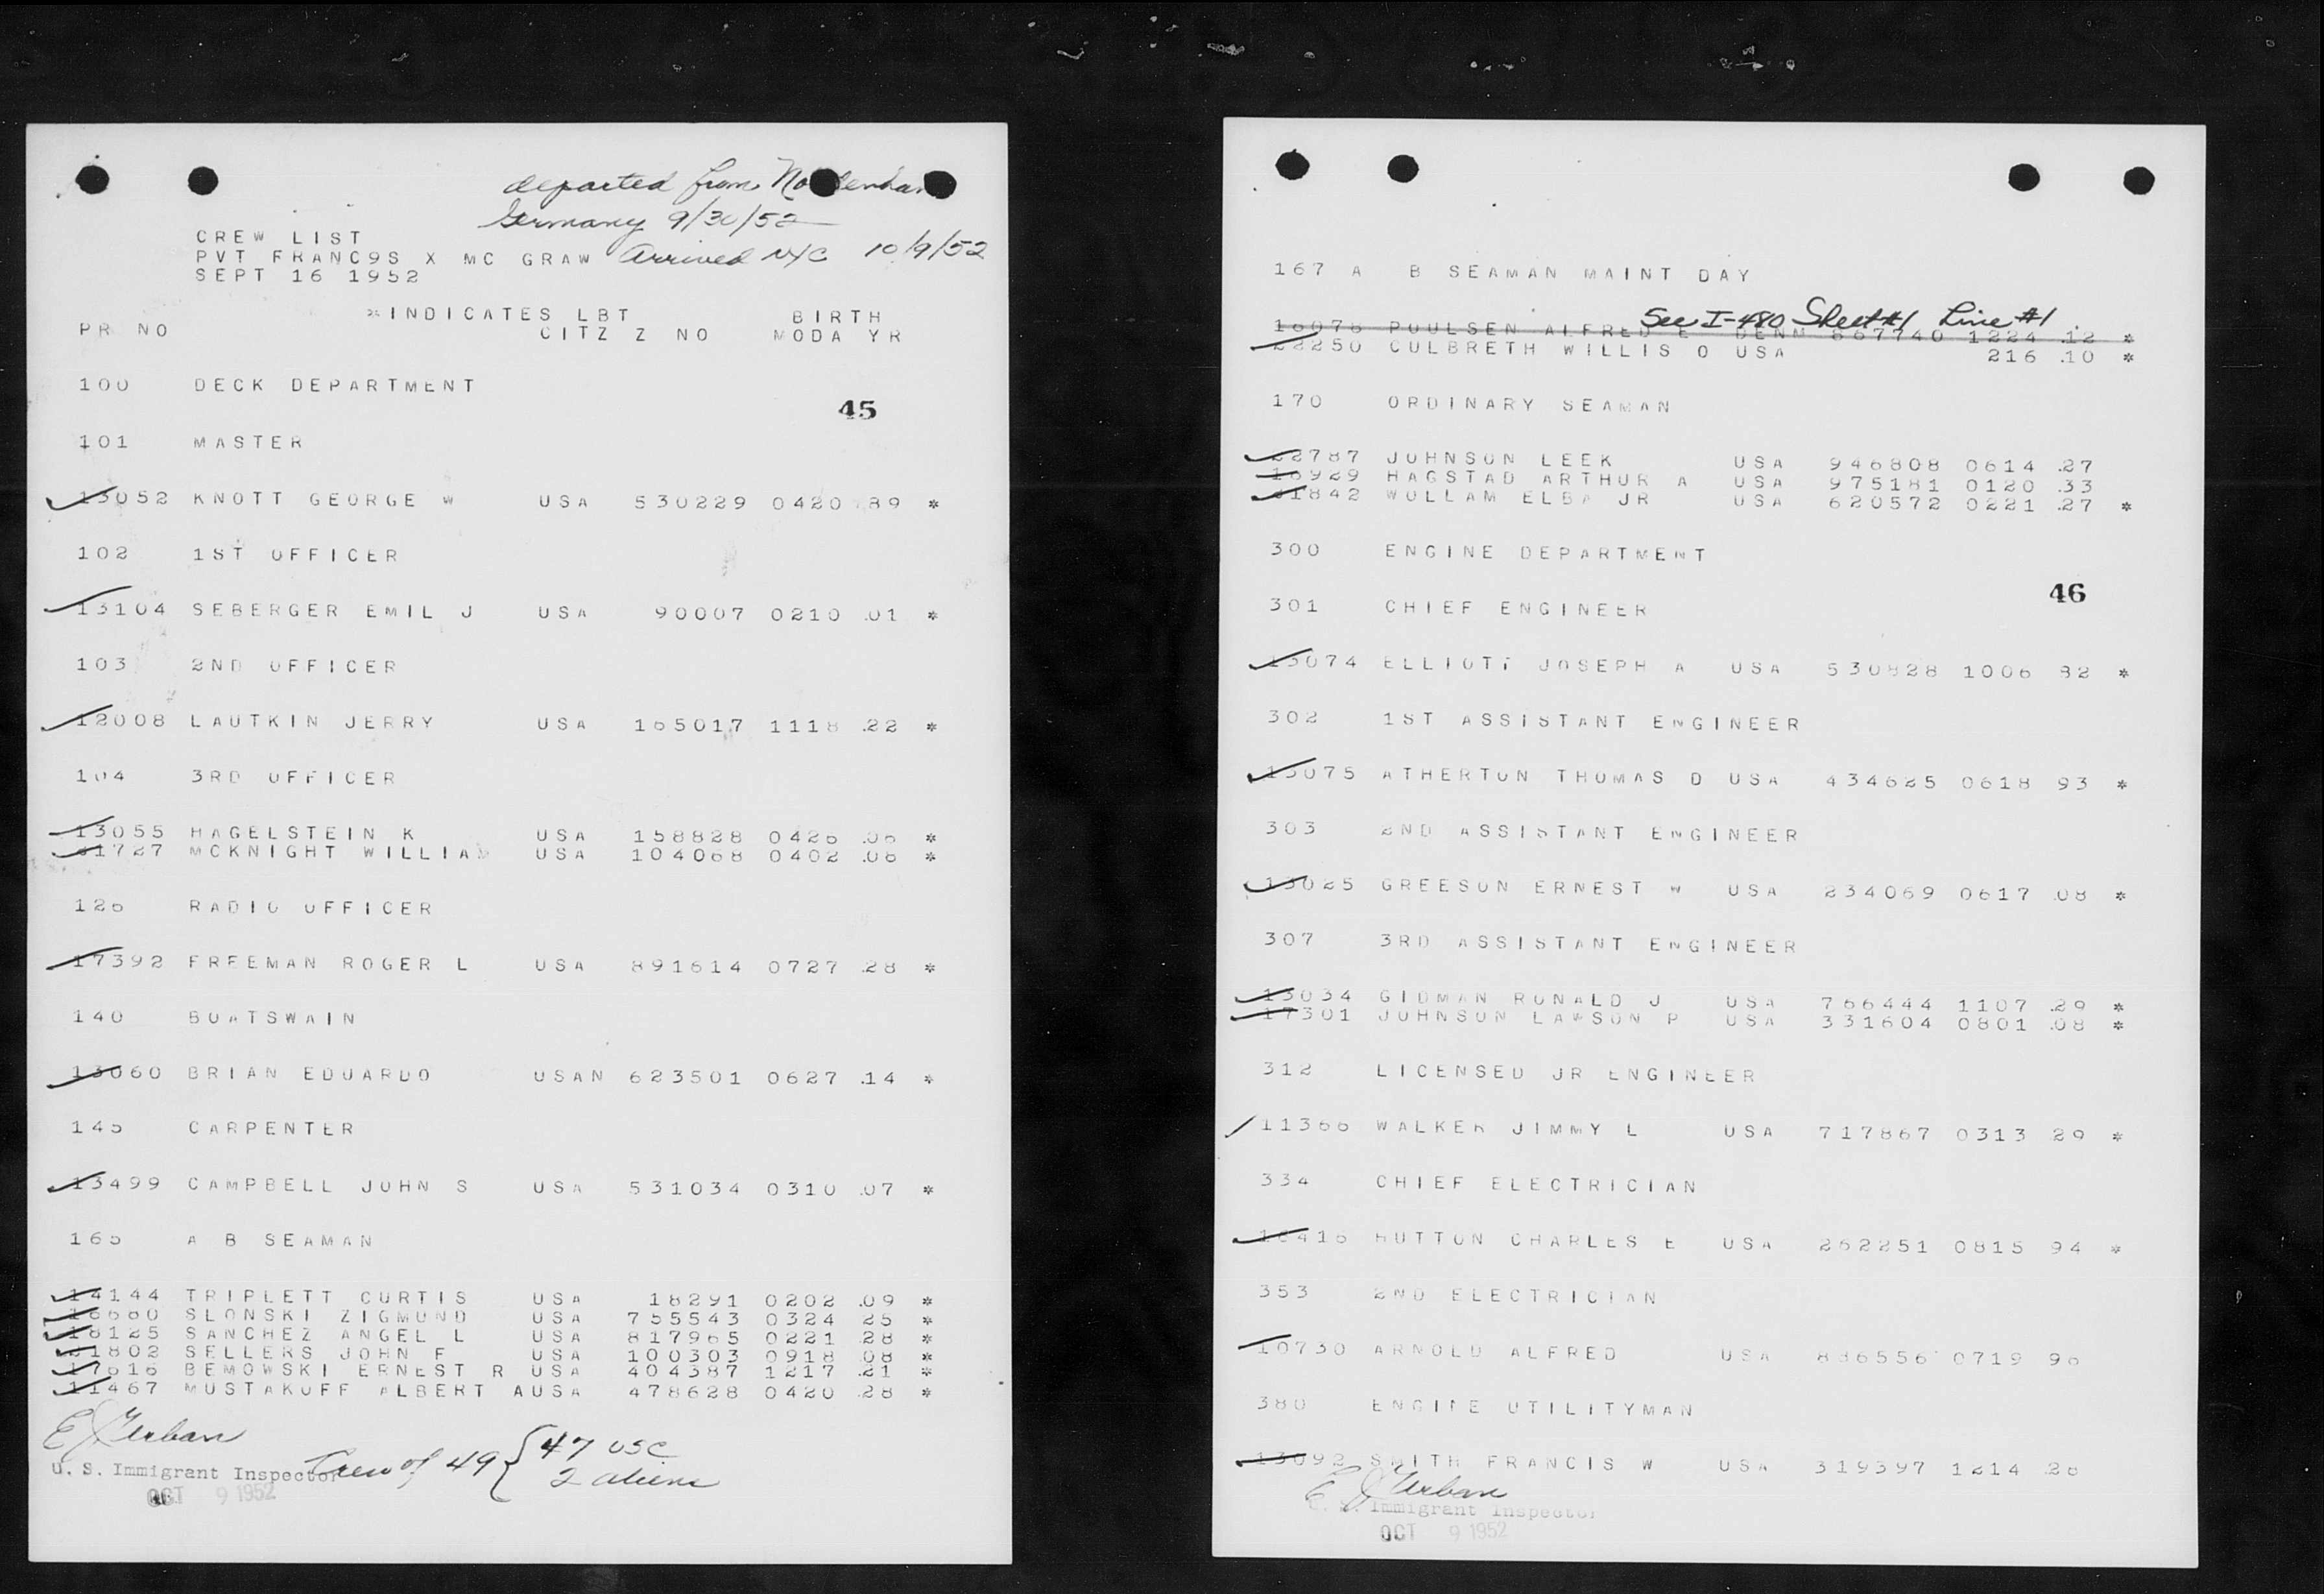 departed from
Germany 9/30/52
CREW LIST
PVT FRANC9S X MC GRAW Arrived NYC 10/9/52
SEPT 16 1952
*INDICATES LBT BIRTH
PR NO CITZ Z NO MODA YR
100 DECK DEPARTMENT
45
101 MASTER
13052 KNOTT GEORGE W USA 530229 0420 89 *
102 1ST OFFICER
13104 SEBERGER EMIL J USA 90007 0210 .01 *
103 2ND OFFICER
12008 LAUTKIN JERRY USA 165017 1118 .22 *
104 3RD OFFICER
13055 HAGELSTEIN K USA 158828 0426 .06 *
MCKNIGHT WILLIAM USA 104068 0402 .06 *
126 RADIO OFFICER
17392 FREEMAN ROGER L USA 891614 0727 .28 *
140 BOATSWAIN
13060 BRIAN EDUARDO USAN 623501 0627 .14 *
145 CARPENTER
13499 CAMPBELL JOHN S USA 531034 0310 .07 *
165 A B SEAMAN
14144 TRIPLETT CURTIS USA 18291 0202 .09 *
SLONSKI ZIGMUND USA 755543 0324 25 *
18125 SANCHEZ ANGEL L USA 817965 0221 .28 *
SELLERS JOHN F USA 100303 0918 .08 *
17616 BEMOWSKI ERNEST R USA 404387 1217 .21 *
11467 MUSTAKOFF ALBERT A USA 478628 0420 .28 *
E J Gerban
U. S. Immigrant Inspector Crew of 49 { 47 USC
2 aliens
OCT 9 1952
167 A B SEAMAN MAINT DAY
See I-480 Sheet #1 Line #1
16076 POULSEN ALFRED E DENM 867740 1224 .12 *
22250 CULBRETH WILLIS O USA 216 .10 *
170 ORDINARY SEAMAN
22787 JOHNSON LEEK USA 946808 0614 .27
16929 HAGSTAD ARTHUR A USA 975181 0120 .33
WOLLAM ELBA JR USA 620572 0221 .27 *
300 ENGINE DEPARTMENT
46
301 CHIEF ENGINEER
13074 ELLIOTT JOSEPH A USA 530828 1006 82 *
302 1ST ASSISTANT ENGINEER
13075 ATHERTON THOMAS D USA 434625 0618 93 *
303 2ND ASSISTANT ENGINEER
13025 GREESON ERNEST W USA 234069 0617 .08 *
307 3RD ASSISTANT ENGINEER
13034 GIDMAN RONALD J USA 766444 1107 .29 *
17301 JOHNSON LAWSON P USA 331604 0801 .08 *
312 LICENSED JR ENGINEER
11366 WALKER JIMMY L USA 717867 0313 29 *
334 CHIEF ELECTRICIAN
HUTTON CHARLES E USA 262251 0815 94 *
353 2ND ELECTRICIAN
10730 ARNOLD ALFRED USA 886556 0719 96
380 ENGINE UTILITYMAN
13092 SMITH FRANCIS W USA 319397 1214 .26
E J Gerban
U. S. Immigrant Inspector
OCT 9 1952